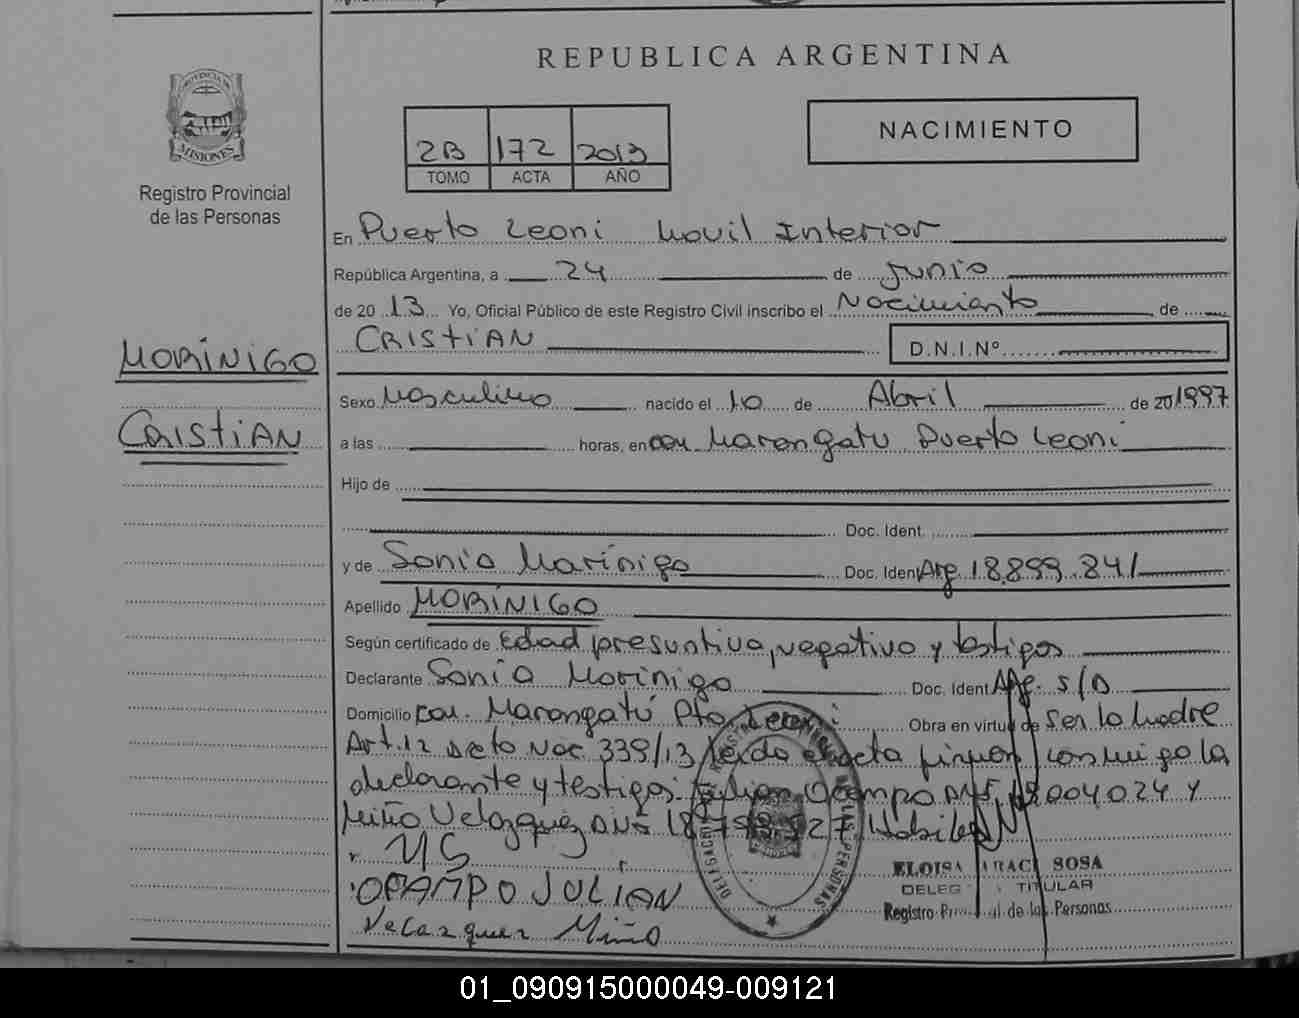 REPUBLICA ARGENTINA
PROVINCIA DE
MISIONES
Registro Provincial
de las Personas
2B 172 2013
TOMO ACTA AÑO
NACIMIENTO
En Puerto Leoni Movil Interior
República Argentina, a 24 de Junio
de 20 13 Yo, Oficial Público de este Registro Civil inscribo el Nacimiento de
CRISTIAN D.N.I.Nº
MORÍNIGO
CRISTIAN
Sexo Masculino nacido el 10 de Abril de 20 1997
a las horas, en com Marangatu Puerto Leoni
Hijo de
Doc. Ident.
y de Sonia Morínigo Doc. Ident Arg. 18.899.841
Apellido MORÍNIGO
Según certificado de Edad presuntiva, negativo y testigos
Declarante Sonia Morinigo Doc. Ident Arg. S/D
Domicilio com. Marangatú Pto Leoni Obra en virtud de Ser la Madre
Art. 12 Dcto Nac 339/13 leída el acta firman conmigo la
declarante y testigos Julian Ocampo DNI 19004024 y
Miño Velazquez DNI 18 Habiles
OCAMPO JULIAN
Velazquez Miño
ELOISA ARACI SOSA
DELEG TITULAR
Registro Provincial de las Personas
01_090915000049-009121